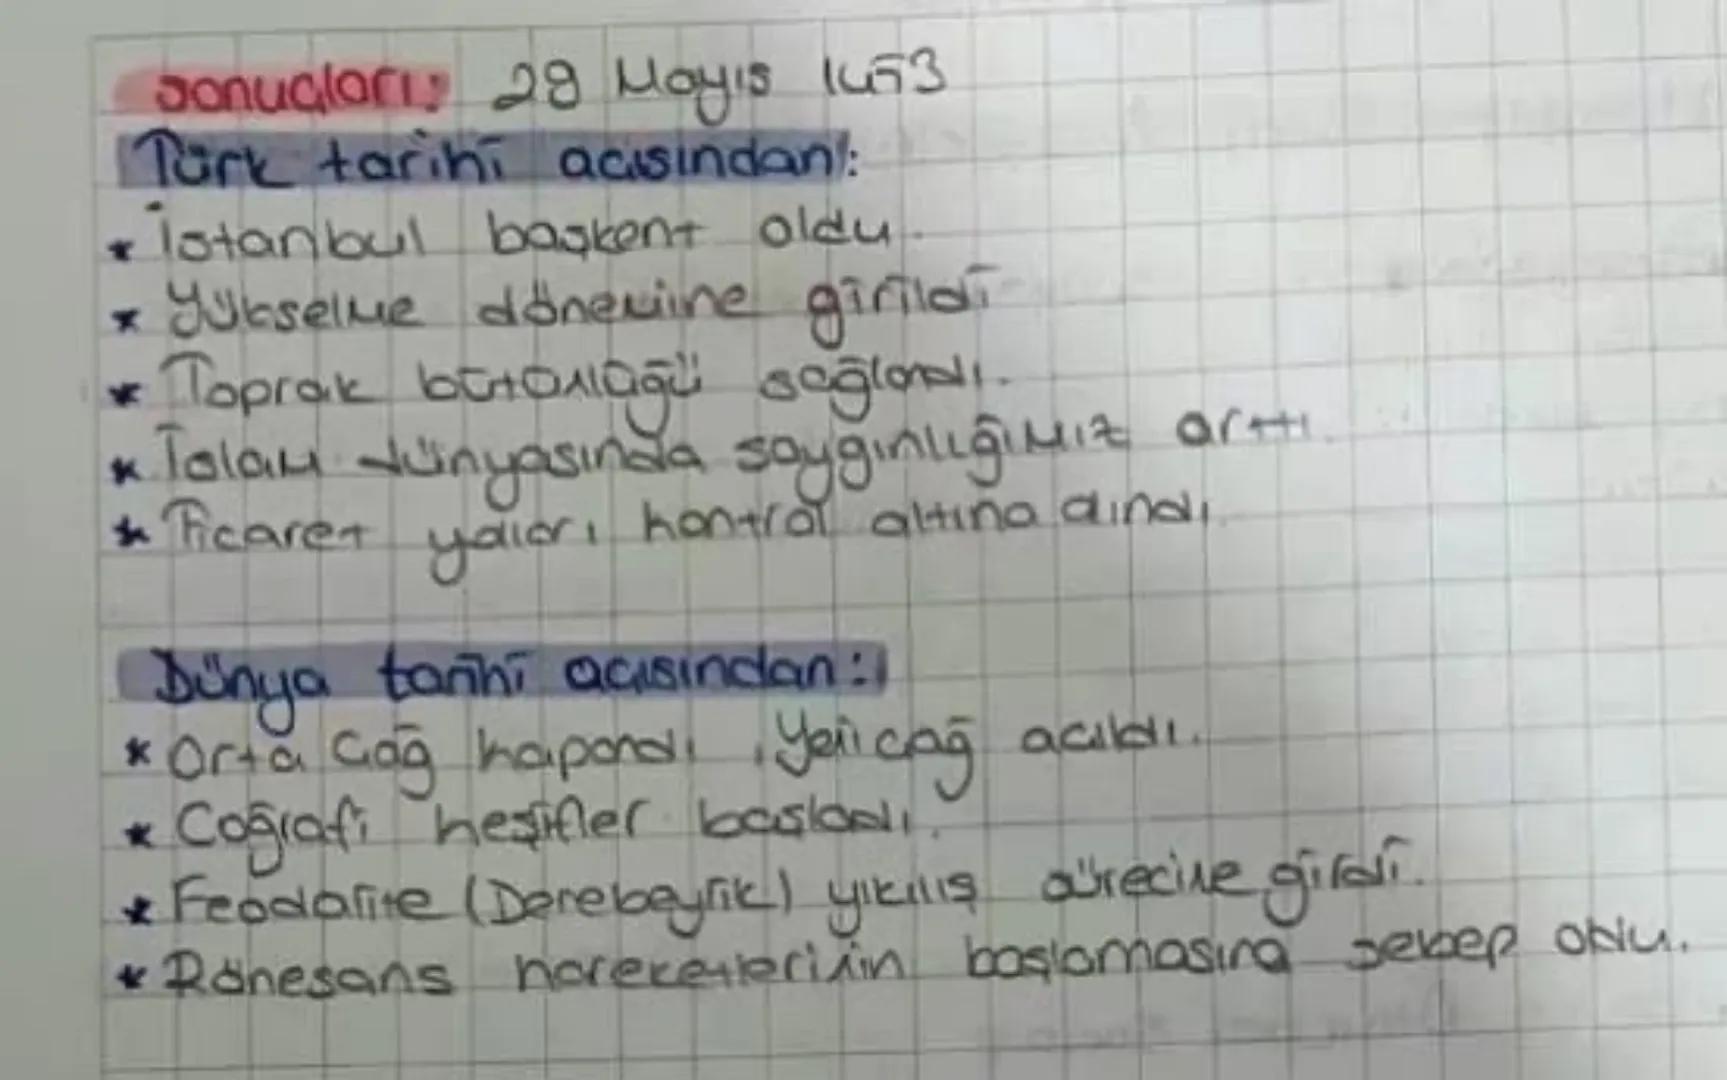 Sonuçları: 29 Mayıs 1453
Türk tarihi açısından:
* İstanbul başkent oldu.
* Yükselme dönemine girildi
* Toprak bütünlüğü sağlandı.
* İslam dünyasında saygınlığımız arttı.
* Ticaret yolları kontrol altına alındı.
Dünya tarihi açısından:
* Orta Çağ kapandı, Yeni çağ açıldı.
* Coğrafi keşifler başladı.
* Feodalite (Derebeylik) yıkılış sürecine girdi.
* Rönesans hareketlerinin başlamasına sebep oldu.